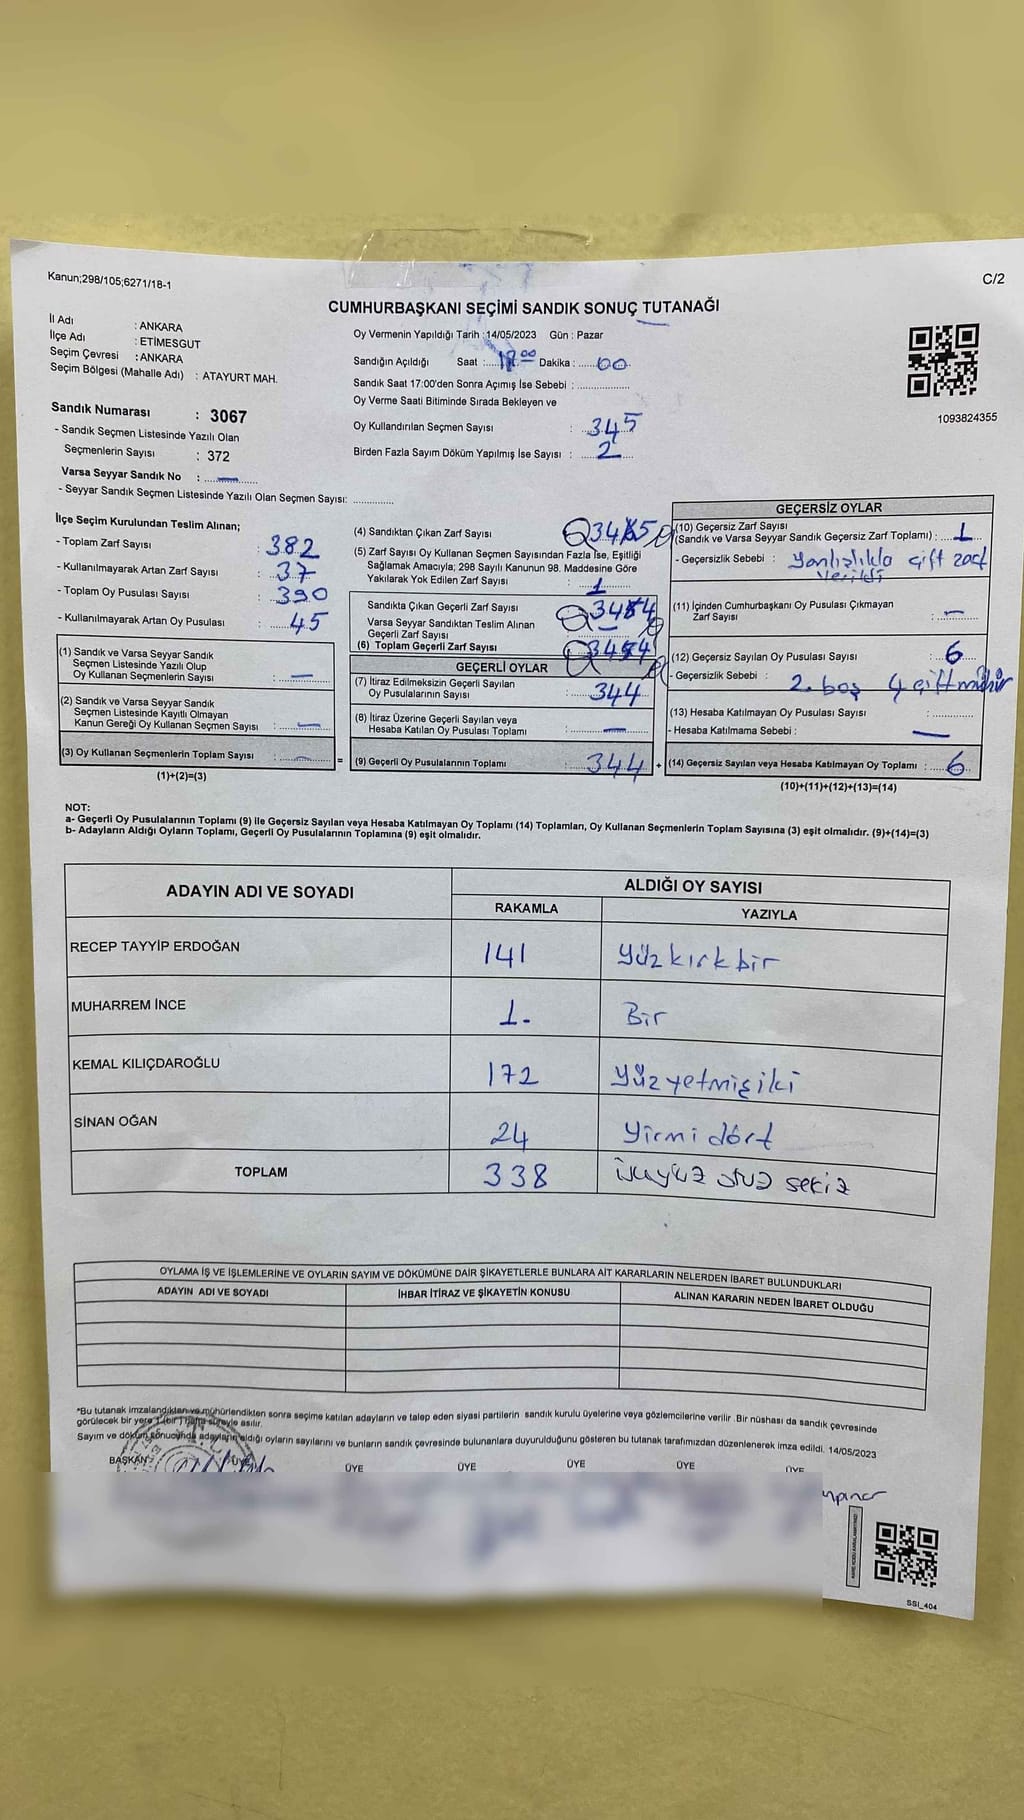 Kanun;298/105;6271/18-1
C/2
CUMHURBAŞKANI SEÇİMİ SANDIK SONUÇ TUTANAĞI
İl Adı : ANKARA
İlçe Adı : ETİMESGUT
Seçim Çevresi : ANKARA
Seçim Bölgesi (Mahalle Adı) : ATAYURT MAH.
Sandık Numarası : 3067
- Sandık Seçmen Listesinde Yazılı Olan
Seçmenlerin Sayısı : 372
Varsa Seyyar Sandık No : —
- Seyyar Sandık Seçmen Listesinde Yazılı Olan Seçmen Sayısı:
Oy Vermenin Yapıldığı Tarih :14/05/2023 Gün : Pazar
Sandığın Açıldığı Saat : Dakika : 00
Sandık Saat 17:00'den Sonra Açımış İse Sebebi :
Oy Verme Saati Bitiminde Sırada Bekleyen ve
Oy Kullandırılan Seçmen Sayısı : 345
Birden Fazla Sayım Döküm Yapılmış İse Sayısı : 2
1093824355
İlçe Seçim Kurulundan Teslim Alınan;
- Toplam Zarf Sayısı : 382
- Kullanılmayarak Artan Zarf Sayısı : 37
- Toplam Oy Pusulası Sayısı : 390
- Kullanılmayarak Artan Oy Pusulası : 45
(1) Sandık ve Varsa Seyyar Sandık
Seçmen Listesinde Yazılı Olup
Oy Kullanan Seçmenlerin Sayısı : —
(2) Sandık ve Varsa Seyyar Sandık
Seçmen Listesinde Kayıtlı Olmayan
Kanun Gereği Oy Kullanan Seçmen Sayısı : —
(3) Oy Kullanan Seçmenlerin Toplam Sayısı : —
(1)+(2)=(3)
=
(4) Sandıktan Çıkan Zarf Sayısı : 345
(5) Zarf Sayısı Oy Kullanan Seçmen Sayısından Fazla İse, Eşitliği
Sağlamak Amacıyla; 298 Sayılı Kanunun 98. Maddesine Göre
Yakılarak Yok Edilen Zarf Sayısı : 1
Sandıkta Çıkan Geçerli Zarf Sayısı : 344
Varsa Seyyar Sandıktan Teslim Alınan
Geçerli Zarf Sayısı : —
(6) Toplam Geçerli Zarf Sayısı : 344
GEÇERLİ OYLAR
(7) İtiraz Edilmeksizin Geçerli Sayılan
Oy Pusulalarının Sayısı : 344
(8) İtiraz Üzerine Geçerli Sayılan veya
Hesaba Katılan Oy Pusulası Toplamı : —
(9) Geçerli Oy Pusulalarının Toplamı : 344
+
GEÇERSİZ OYLAR
(10) Geçersiz Zarf Sayısı
(Sandık ve Varsa Seyyar Sandık Geçersiz Zarf Toplamı) : 1
- Geçersizlik Sebebi : Yanlışlıkla çift zarf
verildi
(11) İçinden Cumhurbaşkanı Oy Pusulası Çıkmayan
Zarf Sayısı : —
(12) Geçersiz Sayılan Oy Pusulası Sayısı : 6
- Geçersizlik Sebebi : 2. boş 4 çift mühür
(13) Hesaba Katılmayan Oy Pusulası Sayısı :
- Hesaba Katılmama Sebebi : —
(14) Geçersiz Sayılan veya Hesaba Katılmayan Oy Toplamı : 6
(10)+(11)+(12)+(13)=(14)
NOT:
a- Geçerli Oy Pusulalarının Toplamı (9) ile Geçersiz Sayılan veya Hesaba Katılmayan Oy Toplamı (14) Toplamları, Oy Kullanan Seçmenlerin Toplam Sayısına (3) eşit olmalıdır. (9)+(14)=(3)
b- Adayların Aldığı Oyların Toplamı, Geçerli Oy Pusulalarının Toplamına (9) eşit olmalıdır.
ADAYIN ADI VE SOYADI
ALDIĞI OY SAYISI
RAKAMLA YAZIYLA
RECEP TAYYİP ERDOĞAN 141 Yüzkırkbir
MUHARREM İNCE 1- Bir
KEMAL KILIÇDAROĞLU 172 Yüzyetmişiki
SİNAN OĞAN 24 Yirmi dört
TOPLAM 338 otuz sekiz
OYLAMA İŞ VE İŞLEMLERİNE VE OYLARIN SAYIM VE DÖKÜMÜNE DAİR ŞİKAYETLERLE BUNLARA AİT KARARLARIN NELERDEN İBARET BULUNDUKLARI
ADAYIN ADI VE SOYADI İHBAR İTİRAZ VE ŞİKAYETİN KONUSU ALINAN KARARIN NEDEN İBARET OLDUĞU
*Bu tutanak imzalandıktan ve mühürlendikten sonra seçime katılan adayların ve talep eden siyasi partilerin sandık kurulu üyelerine veya gözlemcilerine verilir .Bir nüshası da sandık çevresinde
görülecek bir yere 1 (bir ) hafta süreyle asılır.
Sayım ve döküm sonucunda adayların aldığı oyların sayılarını ve bunların sandık çevresinde bulunanlara duyurulduğunu gösteren bu tutanak tarafımızdan düzenlenerek imza edildi. 14/05/2023
BAŞKAN ÜYE ÜYE ÜYE ÜYE ÜYE ÜYE
SSI_404